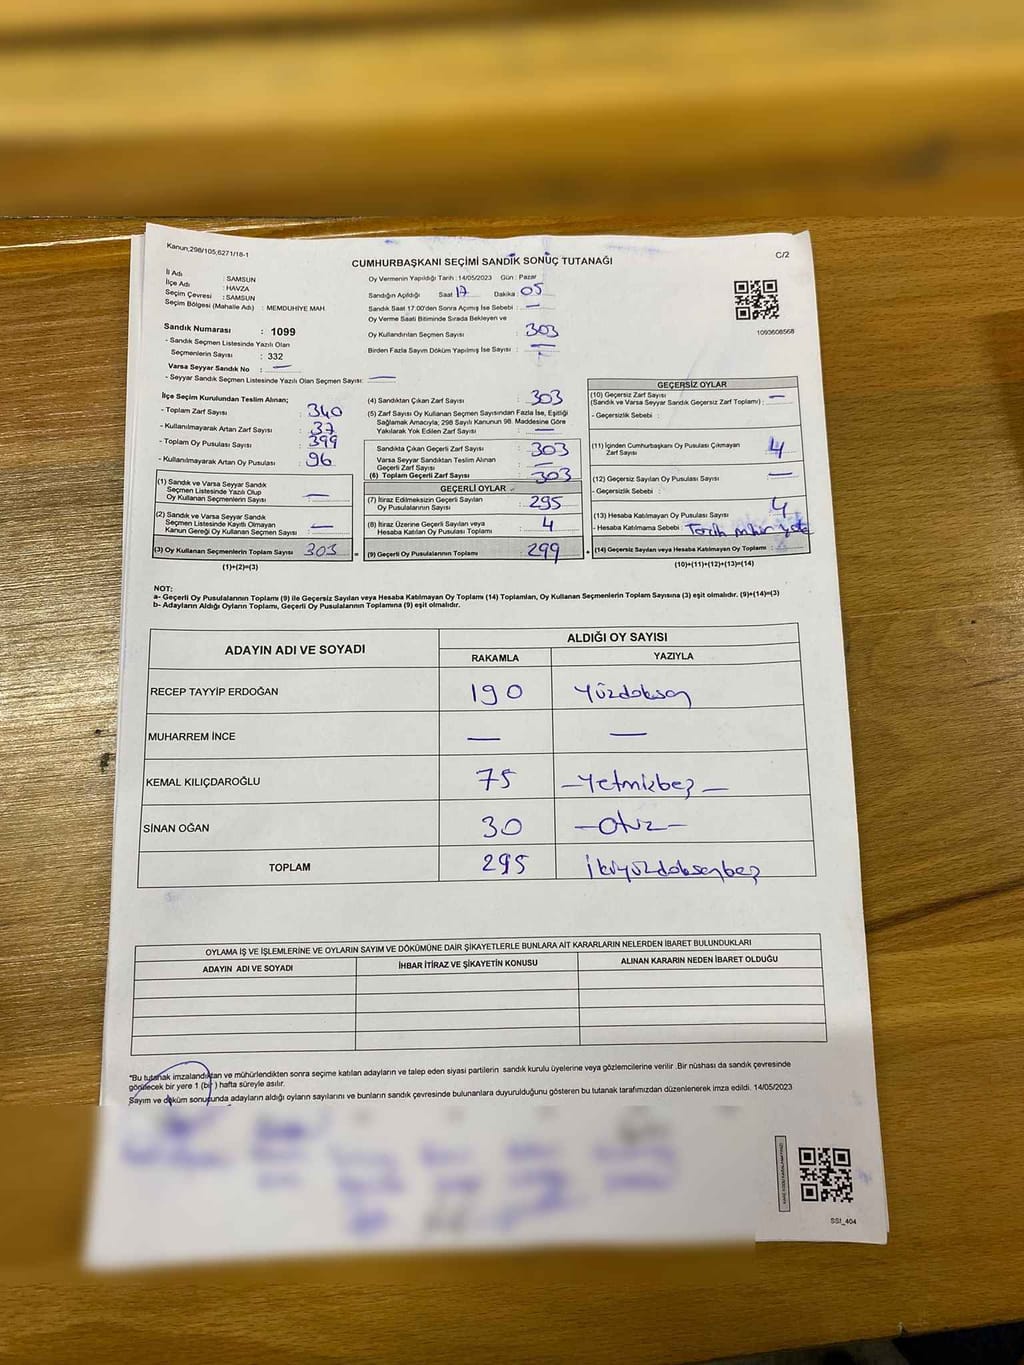 Kanun;298/105;6271/18-1
C/2
CUMHURBAŞKANI SEÇİMİ SANDIK SONUÇ TUTANAĞI
İl Adı : SAMSUN
İlçe Adı : HAVZA
Seçim Çevresi : SAMSUN
Seçim Bölgesi (Mahalle Adı) : MEMDUHİYE MAH.
Oy Vermenin Yapıldığı Tarih :14/05/2023 Gün : Pazar
Sandığın Açıldığı Saat 17 Dakika : 05
Sandık Saat 17:00'den Sonra Açılmış İse Sebebi : —
Oy Verme Saati Bitiminde Sırada Bekleyen ve
Oy Kullandırılan Seçmen Sayısı : 303
Birden Fazla Sayım Döküm Yapılmış İse Sayısı : —
1093608568
Sandık Numarası : 1099
- Sandık Seçmen Listesinde Yazılı Olan
Seçmenlerin Sayısı : 332
Varsa Seyyar Sandık No : —
- Seyyar Sandık Seçmen Listesinde Yazılı Olan Seçmen Sayısı: —
İlçe Seçim Kurulundan Teslim Alınan;
- Toplam Zarf Sayısı : 340
- Kullanılmayarak Artan Zarf Sayısı : 37
- Toplam Oy Pusulası Sayısı : 399
- Kullanılmayarak Artan Oy Pusulası : 96
(1) Sandık ve Varsa Seyyar Sandık
Seçmen Listesinde Yazılı Olup
Oy Kullanan Seçmenlerin Sayısı : —
(2) Sandık ve Varsa Seyyar Sandık
Seçmen Listesinde Kayıtlı Olmayan
Kanun Gereği Oy Kullanan Seçmen Sayısı : —
(3) Oy Kullanan Seçmenlerin Toplam Sayısı : 303
(1)+(2)=(3)
(4) Sandıktan Çıkan Zarf Sayısı : 303
(5) Zarf Sayısı Oy Kullanan Seçmen Sayısından Fazla İse, Eşitliği
Sağlamak Amacıyla; 298 Sayılı Kanunun 98. Maddesine Göre
Yakılarak Yok Edilen Zarf Sayısı : —
Sandıkta Çıkan Geçerli Zarf Sayısı : 303
Varsa Seyyar Sandıktan Teslim Alınan
Geçerli Zarf Sayısı : —
(6) Toplam Geçerli Zarf Sayısı : 303
GEÇERLİ OYLAR
(7) İtiraz Edilmeksizin Geçerli Sayılan
Oy Pusulalarının Sayısı : 295
(8) İtiraz Üzerine Geçerli Sayılan veya
Hesaba Katılan Oy Pusulası Toplamı : 4
= (9) Geçerli Oy Pusulalarının Toplamı : 299
GEÇERSİZ OYLAR
(10) Geçersiz Zarf Sayısı
(Sandık ve Varsa Seyyar Sandık Geçersiz Zarf Toplamı) : —
- Geçersizlik Sebebi :
(11) İçinden Cumhurbaşkanı Oy Pusulası Çıkmayan
Zarf Sayısı : 4
(12) Geçersiz Sayılan Oy Pusulası Sayısı : —
- Geçersizlik Sebebi :
(13) Hesaba Katılmayan Oy Pusulası Sayısı : 4
- Hesaba Katılmama Sebebi : Tercih mühür yok
+ (14) Geçersiz Sayılan veya Hesaba Katılmayan Oy Toplamı :
(10)+(11)+(12)+(13)=(14)
NOT:
a- Geçerli Oy Pusulalarının Toplamı (9) ile Geçersiz Sayılan veya Hesaba Katılmayan Oy Toplamı (14) Toplamları, Oy Kullanan Seçmenlerin Toplam Sayısına (3) eşit olmalıdır. (9)+(14)=(3)
b- Adayların Aldığı Oyların Toplamı, Geçerli Oy Pusulalarının Toplamına (9) eşit olmalıdır.
ADAYIN ADI VE SOYADI
ALDIĞI OY SAYISI
RAKAMLA YAZIYLA
RECEP TAYYİP ERDOĞAN 190 Yüzdoksan
MUHARREM İNCE — —
KEMAL KILIÇDAROĞLU 75 —Yetmişbeş—
SİNAN OĞAN 30 —Otuz—
TOPLAM 295 İkiyüzdoksanbeş
OYLAMA İŞ VE İŞLEMLERİNE VE OYLARIN SAYIM VE DÖKÜMÜNE DAİR ŞİKAYETLERLE BUNLARA AİT KARARLARIN NELERDEN İBARET BULUNDUKLARI
ADAYIN ADI VE SOYADI İHBAR İTİRAZ VE ŞİKAYETİN KONUSU ALINAN KARARIN NEDEN İBARET OLDUĞU
*Bu tutanak imzalandıktan ve mühürlendikten sonra seçime katılan adayların ve talep eden siyasi partilerin sandık kurulu üyelerine veya gözlemcilerine verilir .Bir nüshası da sandık çevresinde
görülecek bir yere 1 (bir ) hafta süreyle asılır.
Sayım ve döküm sonucunda adayların aldığı oyların sayılarını ve bunların sandık çevresinde bulunanlara duyurulduğunu gösteren bu tutanak tarafımızdan düzenlenerek imza edildi. 14/05/2023
SSI_404